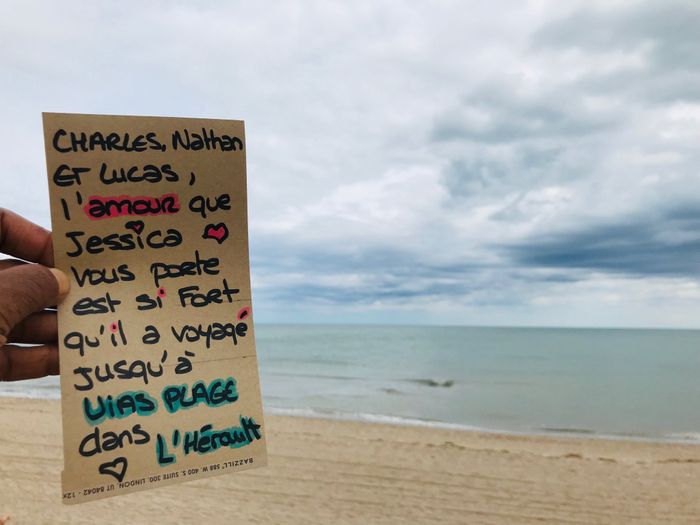 CHARLES, Nathan
ET LUCAS,
l'amour que
Jessica
vous porte
est si Fort
qu'il a voyagé
jusqu'à
VIAS PLAGE
dans L'Hérault
BAZZILL 588 W. 400 S. SUITE 300, LINDON, UT 84042 • 12x